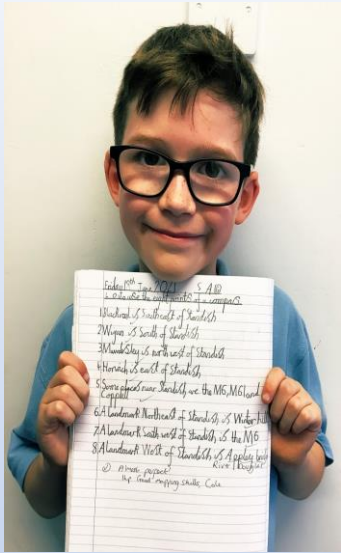 Friday 18th June 2021 S.A.B
to describe the eight points of a compass
1 Blackrod is South east of Standish
2 Wigan is South of Standish
3 is north west of Standish
4 Horwich is east of Standish
5 Some places near Standish are the M6, M61 and
Coppull
6 A landmark North east of Standish is Winter hill
7 A landmark South west of Standish is the M6
8 A landmark West of Standish is Appley bridge
River Douglas
Almost perfect
Good mapping skills